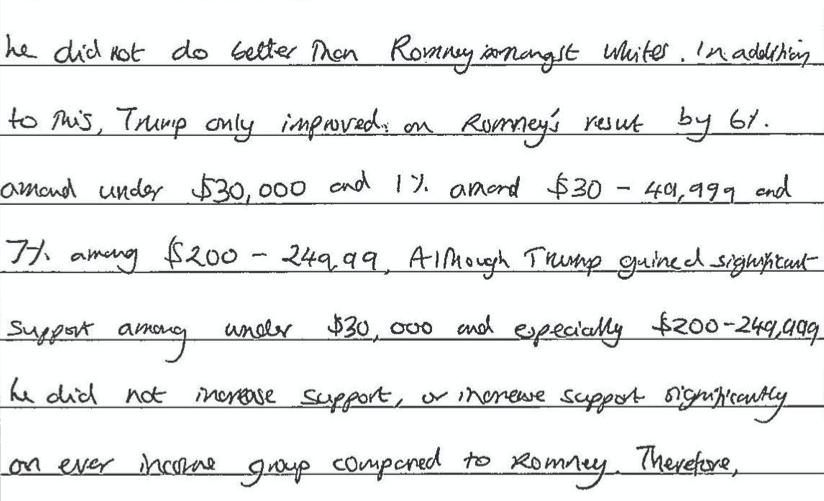 he did not do better than Romney amongst whites. In addition
to this, Trump only improved on Romney's resut by 6%.
amond under $30,000 and 1% amond $30 - 49,999 and
7% among $200 - 249,99, Although Trump guined significant
support among under $30,000 and especially $200-249,999
he did not increase support, or increase support significantly
on ever income group compared to Romney. Therefore,